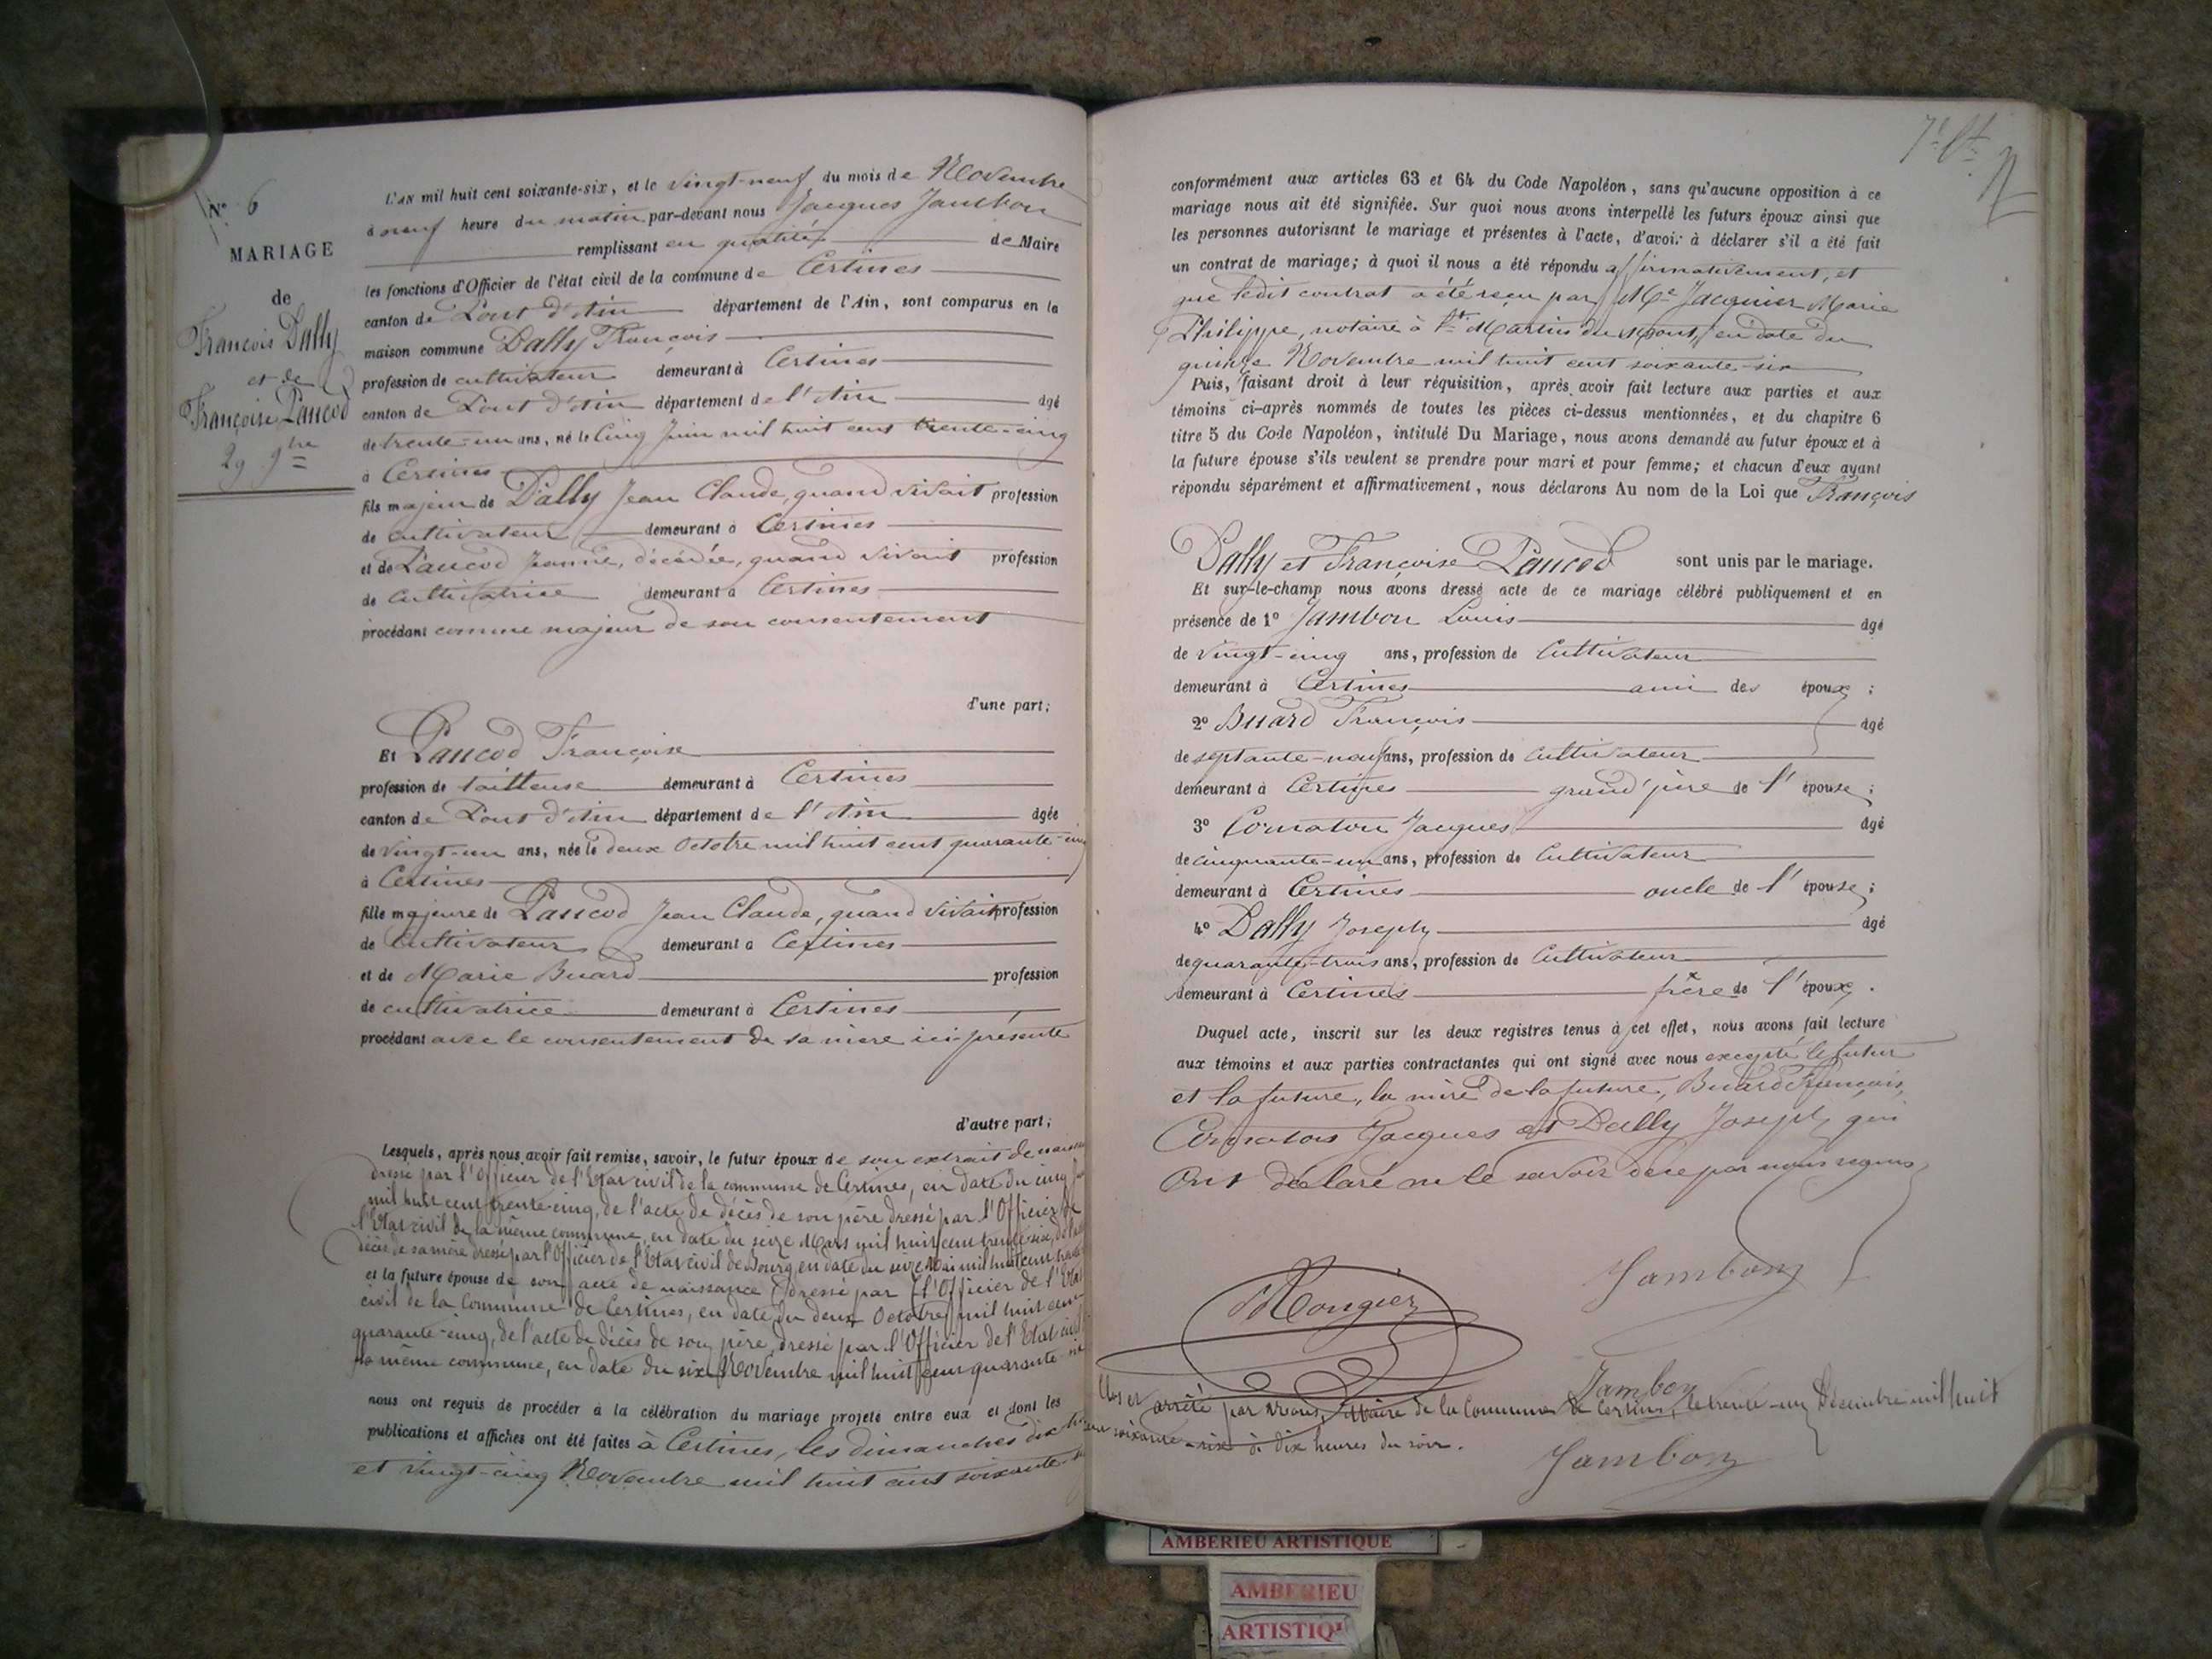 N° 6
MARIAGE
de
François Dally
et de
Françoise Pancod
29 9bre
L'AN mil huit cent soixante-six, et le vingt-neuf du mois de Novembre
à neuf heure du matin par-devant nous Jacques Jambon
remplissant en qualité de Maire
les fonctions d'Officier de l'état civil de la commune de Certines
canton de Pont d'Ain département de l'Ain, sont comparus en la
maison commune Dally François
profession de cultivateur demeurant à Certines
canton de Pont d'Ain département de l'Ain âgé
de trente-un ans, né le cinq Juin mil huit cent trente-cinq
à Certines
fils majeur de Dally Jean Claude, quand vivait profession
de cultivateur demeurant à Certines
et de Pancod Jeanne, décédée, quand vivait profession
de cultivatrice demeurant à Certines
procédant comme majeur de son consentement
d'une part;
Et Pancod Françoise
profession de tailleuse demeurant à Certines
canton de Pont d'Ain département de l'Ain âgée
de vingt-un ans, née le deux Octobre mil huit cent quarante-cinq
à Certines
fille majeure de Pancod Jean Claude, quand vivait profession
de cultivateur demeurant à Certines
et de Marie Buard profession
de cultivatrice demeurant à Certines
procédant avec le consentement de sa mère ici présente
d'autre part;
Lesquels, après nous avoir fait remise, savoir, le futur époux de son extrait de
dressé par l'Officier de l'Etat civil de la commune de Certines, en date du cinq
mil huit cent trente-cinq, de l'acte de décès de son père dressé par l'Officier de
l'Etat civil de la même commune, en date du seize Mars mil huit cent trente-six,
décès de sa mère dressé par l'Officier de l'Etat civil de Bourg, en date du seize Mai mil huit cent
et la future épouse de son acte de naissance dressé par l'Officier de l'Etat
civil de la Commune de Certines, en date du deux Octobre mil huit cent
quarante-cinq, de l'acte de décès de son père, dressé par l'Officier de l'Etat civil
la même commune, en date du six Novembre mil huit cent quarante
nous ont requis de procéder à la célébration du mariage projeté entre eux et dont les
publications et affiches ont été faites à Certines, les dimanches dix
et vingt-cinq Novembre mil huit cent soixante
conformément aux articles 63 et 64 du Code Napoléon, sans qu'aucune opposition à ce
mariage nous ait été signifiée. Sur quoi nous avons interpellé les futurs époux ainsi que
les personnes autorisant le mariage et présentes à l'acte, d'avoir à déclarer s'il a été fait
un contrat de mariage; à quoi il nous a été répondu affirmativement, et
que ledit contrat a été reçu par Me Jacquier Marie
Philippe, notaire à St Martin du Mont, en date du
quinze Novembre mil huit cent soixante-six
Puis, faisant droit à leur réquisition, après avoir fait lecture aux parties et aux
témoins ci-après nommés de toutes les pièces ci-dessus mentionnées, et du chapitre 6
titre 5 du Code Napoléon, intitulé Du Mariage, nous avons demandé au futur époux et à
la future épouse s'ils veulent se prendre pour mari et pour femme; et chacun d'eux ayant
répondu séparément et affirmativement, nous déclarons Au nom de la Loi que François
Dally et Françoise Pancod sont unis par le mariage.
Et sur-le-champ nous avons dressé acte de ce mariage célébré publiquement et en
présence de 1° Jambon Louis âgé
de vingt-cinq ans, profession de Cultivateur
demeurant à Certines ami des époux;
2° Buard François âgé
de septante-neuf ans, profession de Cultivateur
demeurant à Certines grand'père de l'épouse;
3° Cornaton Jacques âgé
de cinquante-un ans, profession de Cultivateur
demeurant à Certines oncle de l'épouse;
4° Dally Joseph âgé
de quarante-trois ans, profession de Cultivateur
demeurant à Certines frère de l'époux.
Duquel acte, inscrit sur les deux registres tenus à cet effet, nous avons fait lecture
aux témoins et aux parties contractantes qui ont signé avec nous excepté le futur
et la future, la mère de la future, Buard François,
Cornaton Jacques et Dally Joseph qui
ont déclaré ne le savoir de ce par nous requis
Jambon
Mongier
Jambon
Clos et arrêté par nous, Maire de la Commune de Certines, le trente-un Décembre mil huit
cent soixante-six à dix heures du soir.
Jambon
AMBERIEU ARTISTIQUE
AMBERIEU
ARTISTIQ